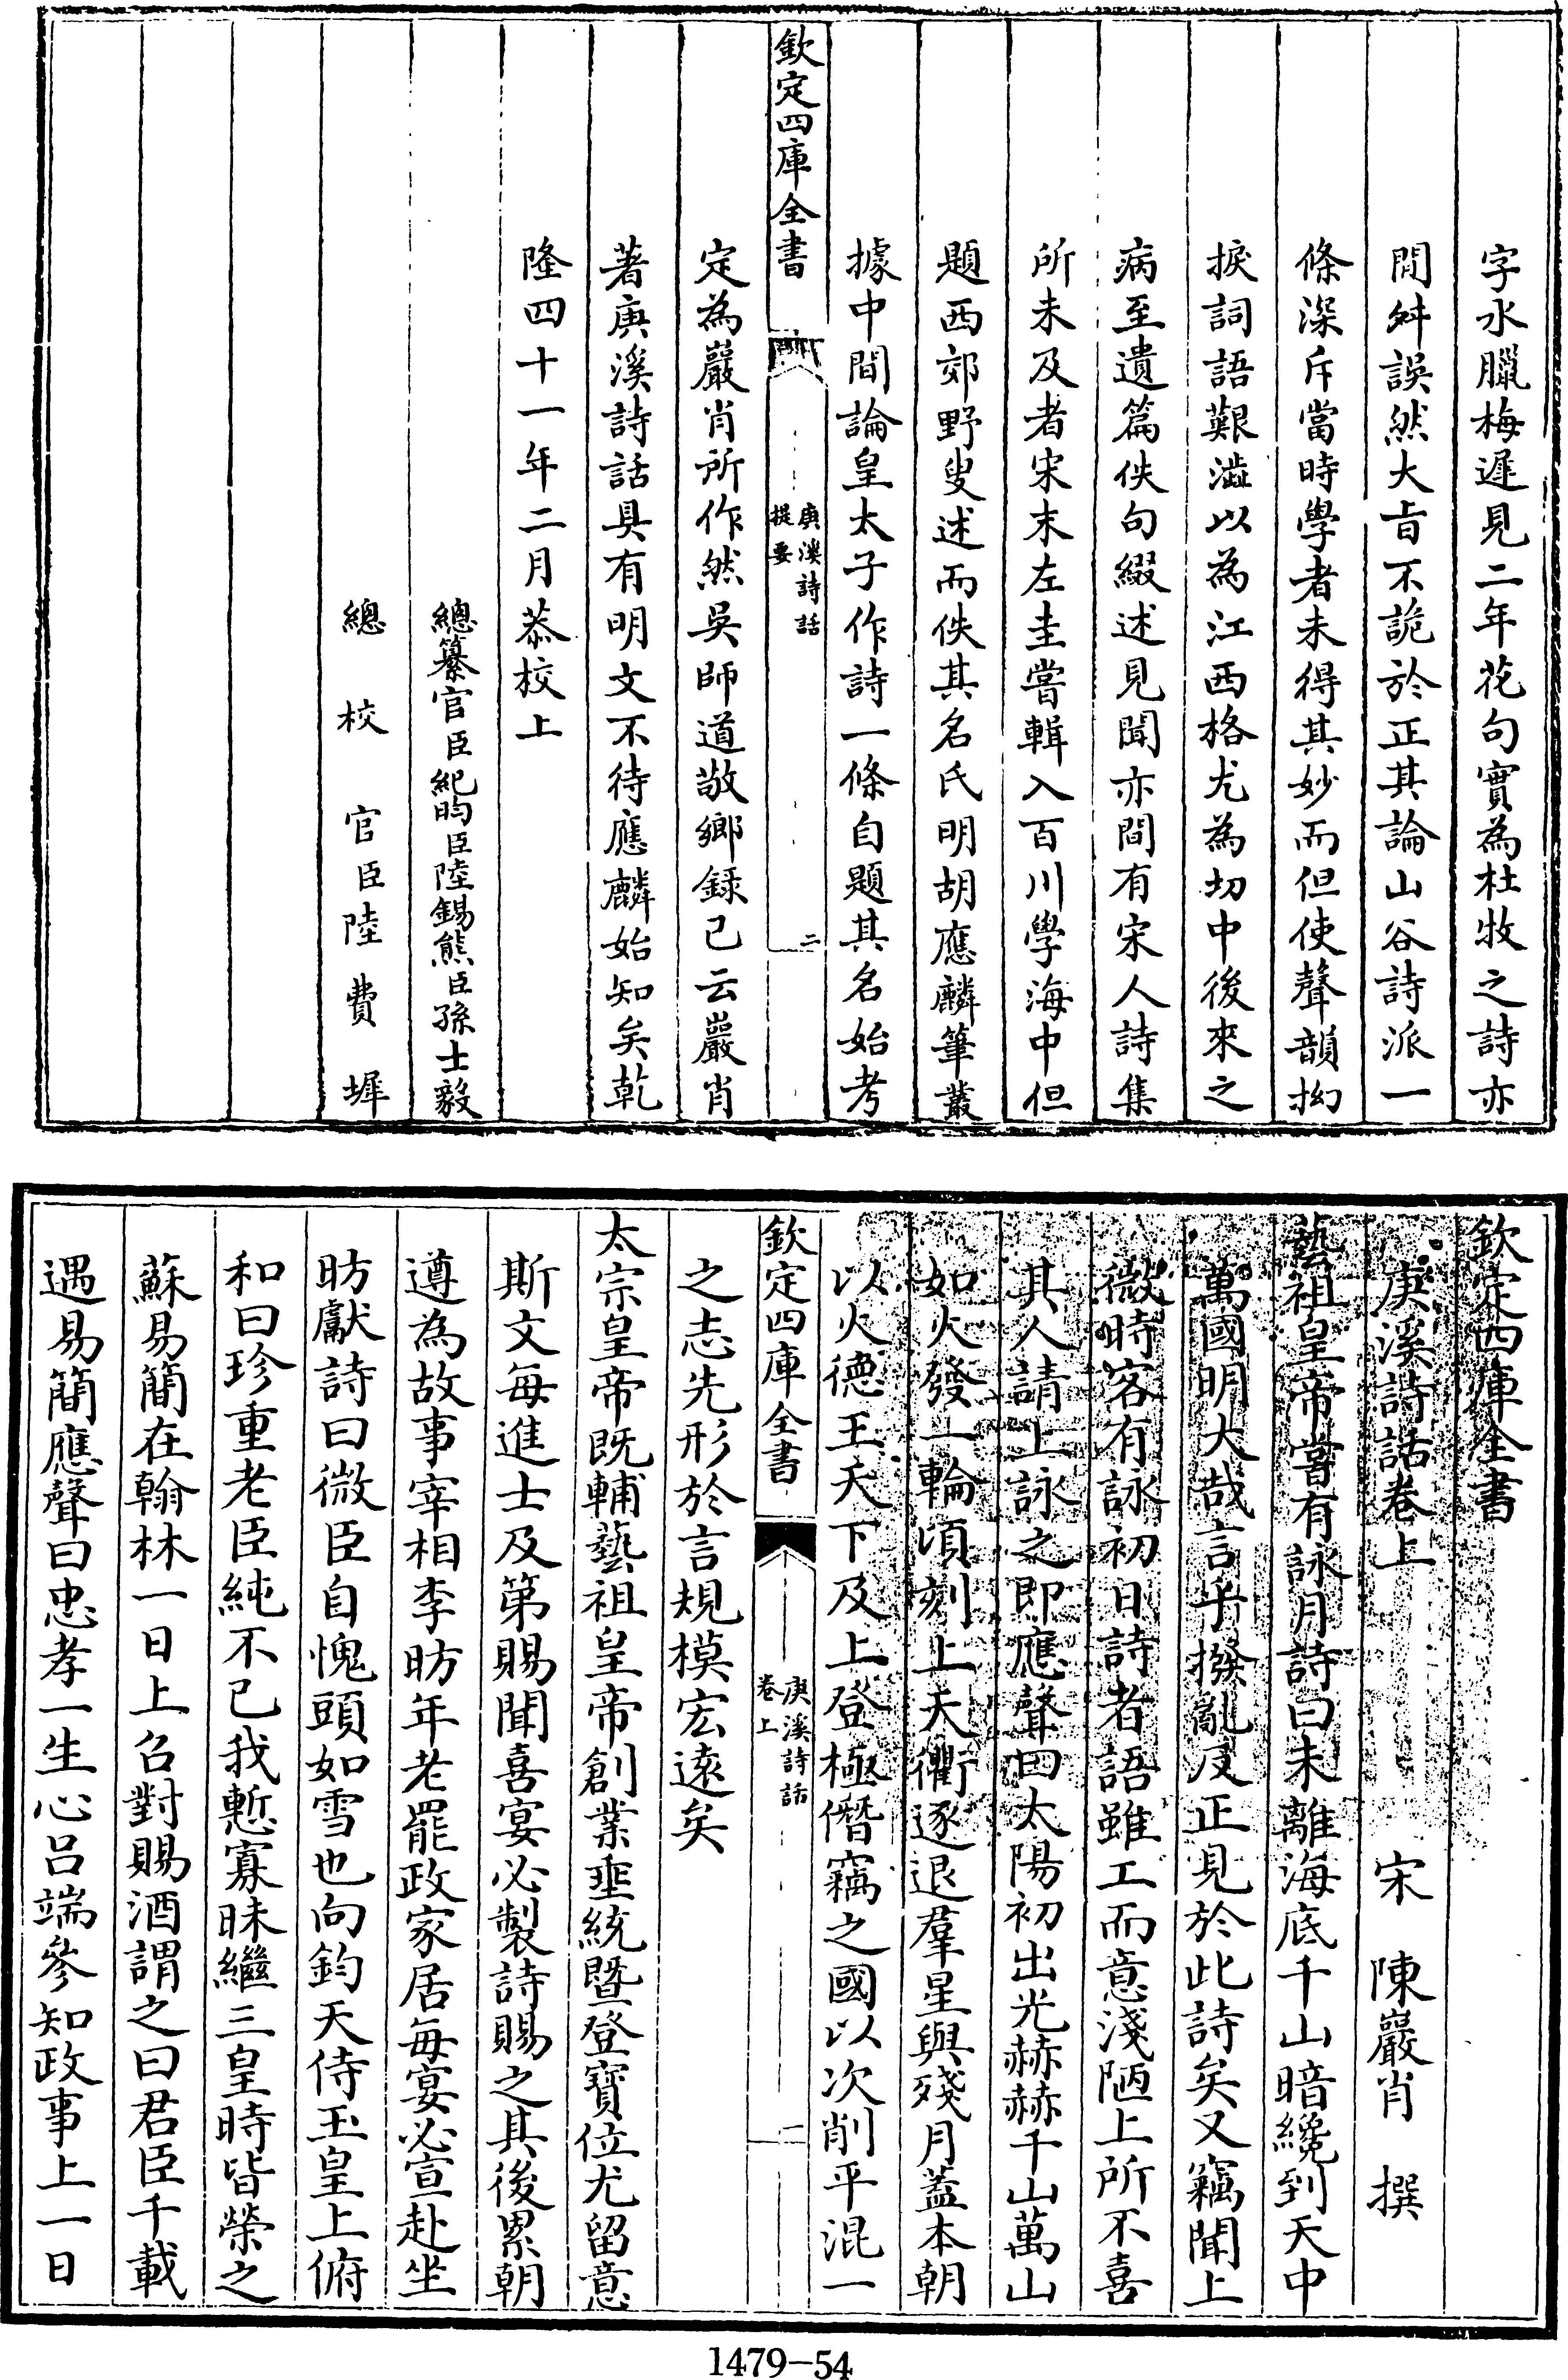 字水臘梅遲見二年花句實為杜牧之詩亦
間舛誤然大旨不詭於正其論山谷詩派一
條深斥當時學者未得其妙而但使聲韻拗
捩詞語艱澁以為江西格尤為切中後來之
病至遺篇佚句綴述見聞亦間有宋人詩集
所未及者宋末左圭嘗輯入百川學海中但
題西郊野叟述而佚其名氏明胡應麟筆叢
據中間論皇太子作詩一條自題其名始考
欽定四庫全書
庚溪詩話
提要
二
定為巖肖所作然吳師道敬鄉録已云巖肖
著庚溪詩話具有明文不待應麟始知矣乾
隆四十一年二月恭校上
總纂官臣紀昀臣陸錫熊臣孫士毅
總校官臣陸費墀
欽定四庫全書
庚溪詩話卷上
宋 陳巖肖 撰
藝祖皇帝嘗有詠月詩曰未離海底千山暗纔到天中
萬國明大哉言乎撥亂反正見於此詩矣又竊聞上
微時客有詠初日詩者語雖工而意淺陋上所不喜
其人請上詠之即應聲曰太陽初出光赫赫千山萬山
如火發一輪頃刻上天衢逐退羣星與殘月蓋本朝
以火德王天下及上登極僭竊之國以次削平混一
欽定四庫全書
庚溪詩話
卷上
一
之志先形於言規模宏遠矣
太宗皇帝既輔藝祖皇帝創業垂統暨登寶位尤留意
斯文每進士及第賜聞喜宴必製詩賜之其後累朝
遵為故事宰相李昉年老罷政家居每宴必宣赴坐
昉獻詩曰微臣自愧頭如雪也向鈞天侍玉皇上俯
和曰珍重老臣純不已我慙寡昧繼三皇時皆榮之
蘇易簡在翰林一日上召對賜酒謂之曰君臣千載
遇易簡應聲曰忠孝一生心吕端參知政事上一日
1479-54